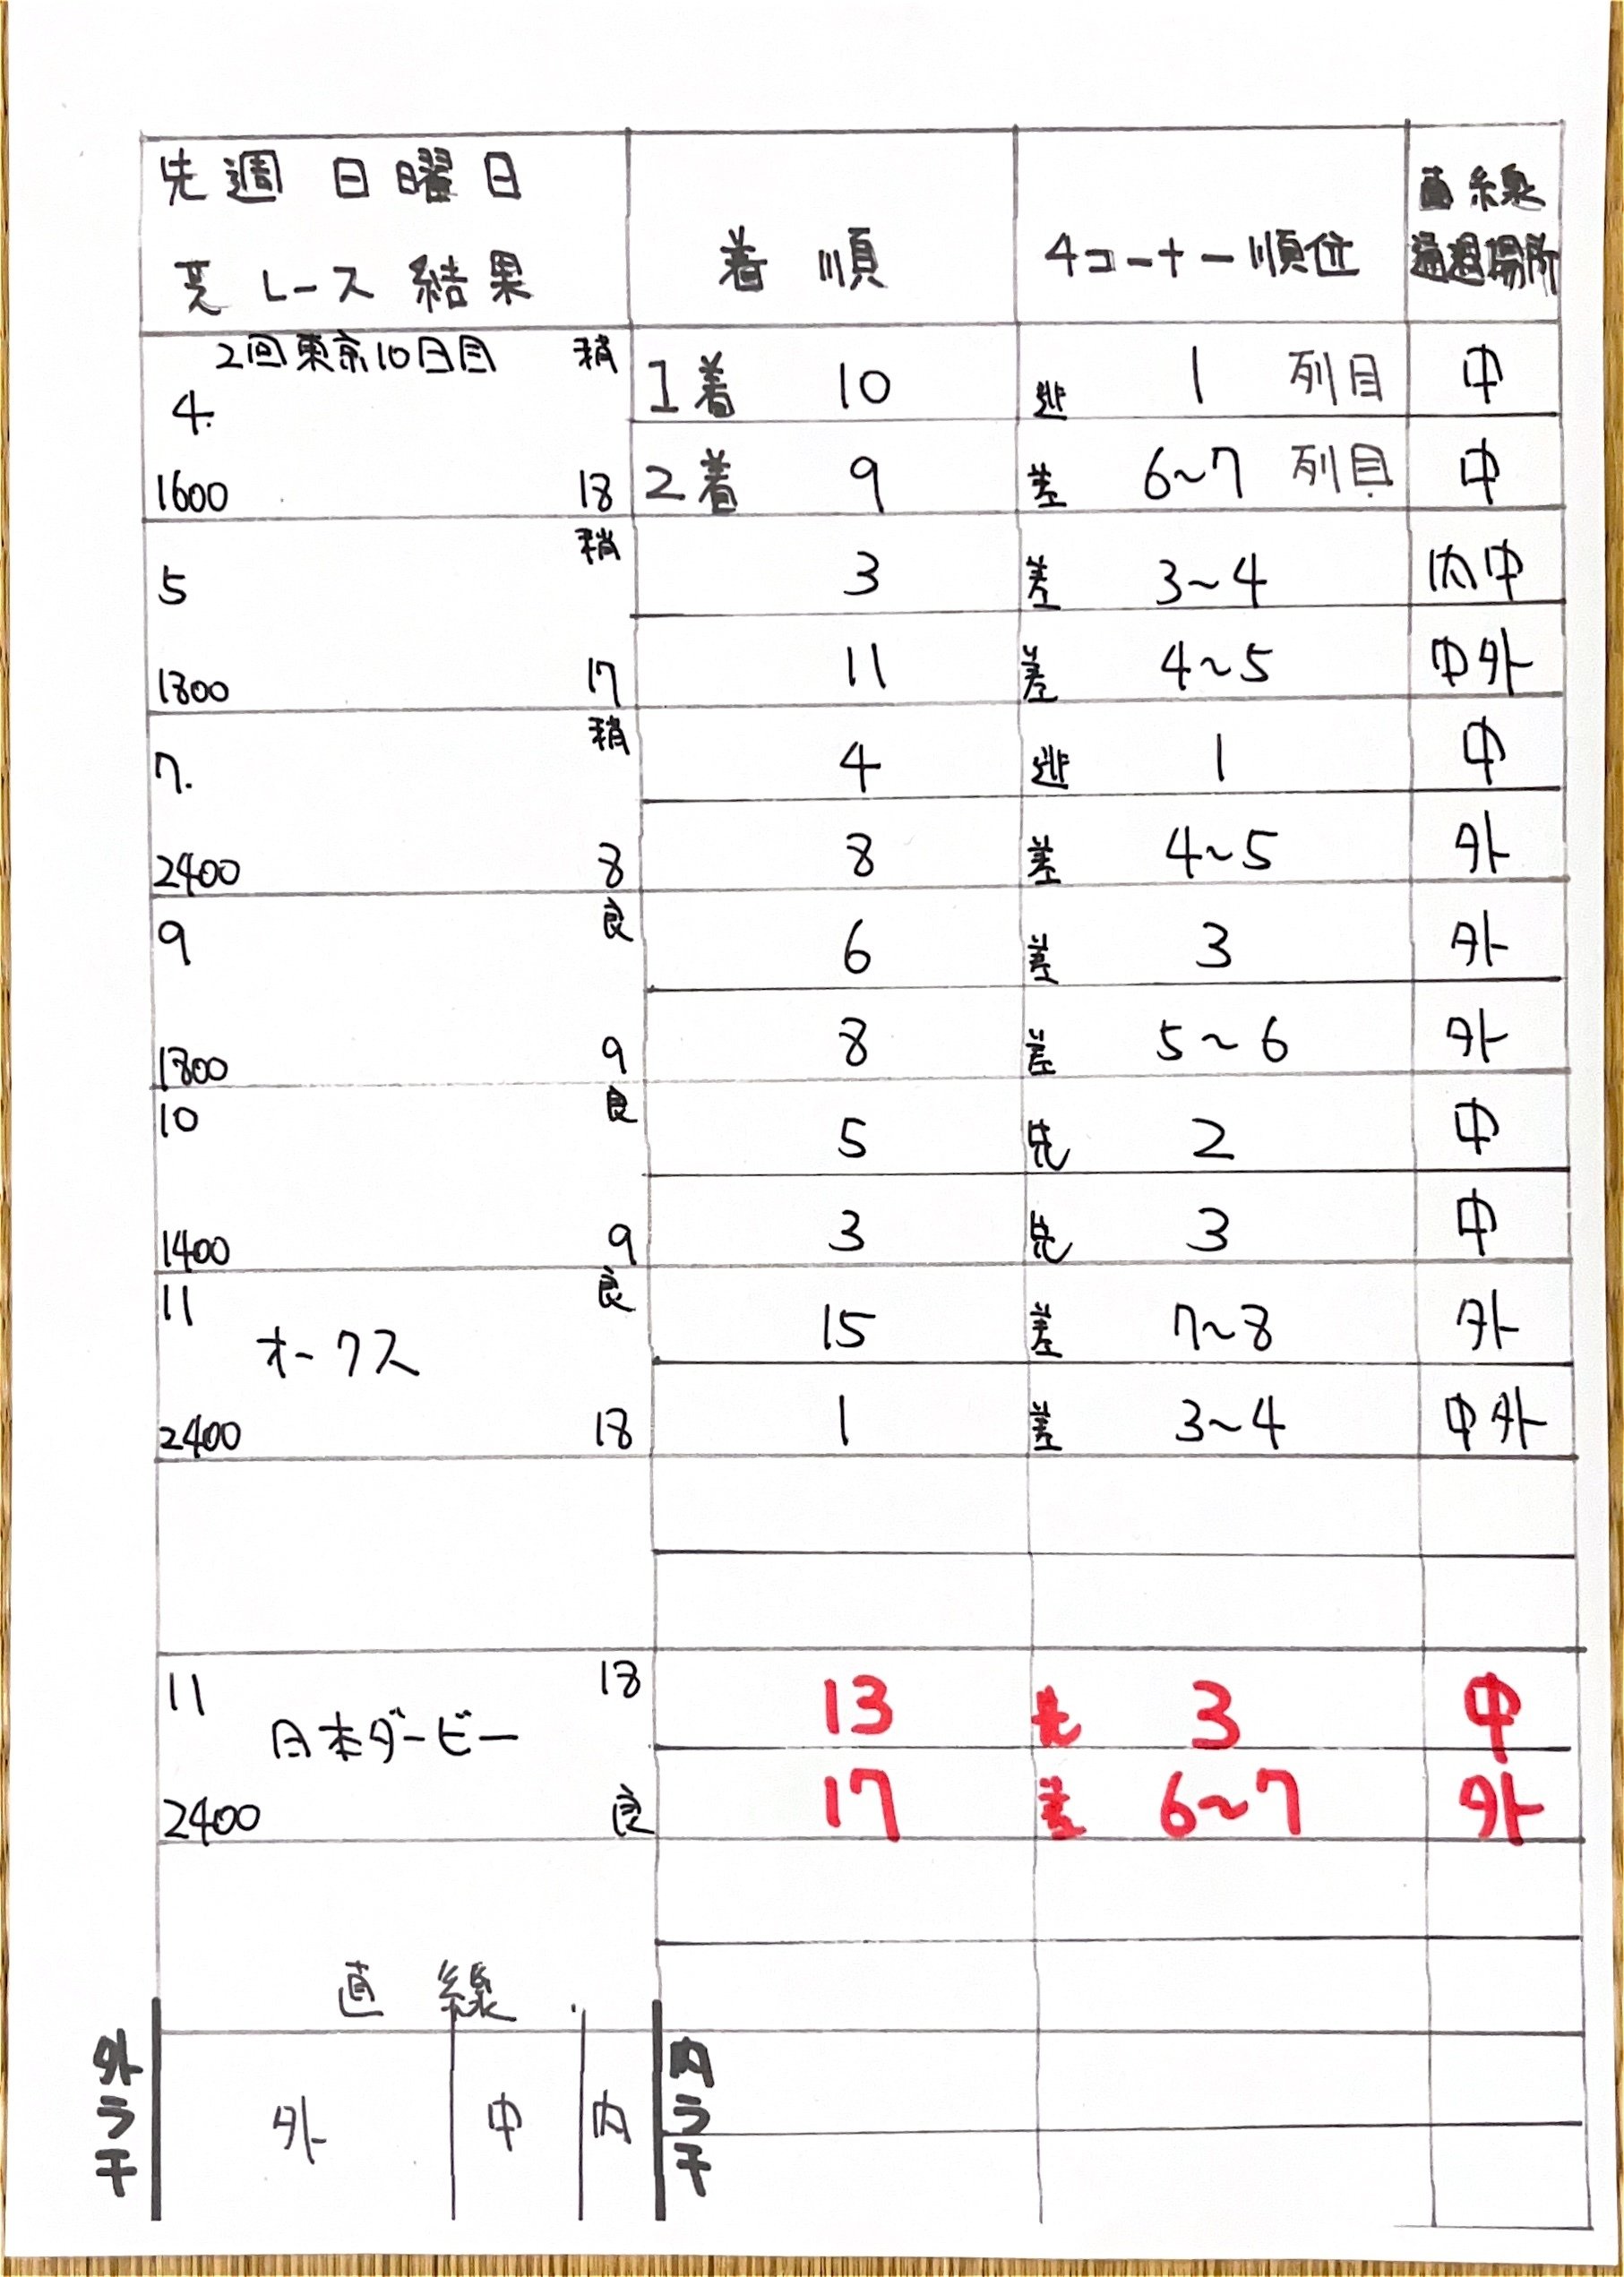 先週 日曜日
芝 レース 結果
着 順
4コーナー順位
直線
通過場所
2回東京10日目 稍
4.
1600 18
1着 10 逃 1 列目 中
2着 9 差 6~7 列目 中
稍
5
1800 17
3 差 3~4 内中
11 差 4~5 中外
稍
7.
2400 8
4 逃 1 中
8 差 4~5 外
良
9
1800 9
6 差 3 外
8 差 5~6 外
良
10
1400 9
5 先 2 中
3 先 3 中
良
11
オークス
2400 18
15 差 7~8 外
1 差 3~4 中外
11 18
日本ダービー
2400 良
13 先 3 中
17 差 6~7 外
直線
外ラチ
外 中 内
内ラチ